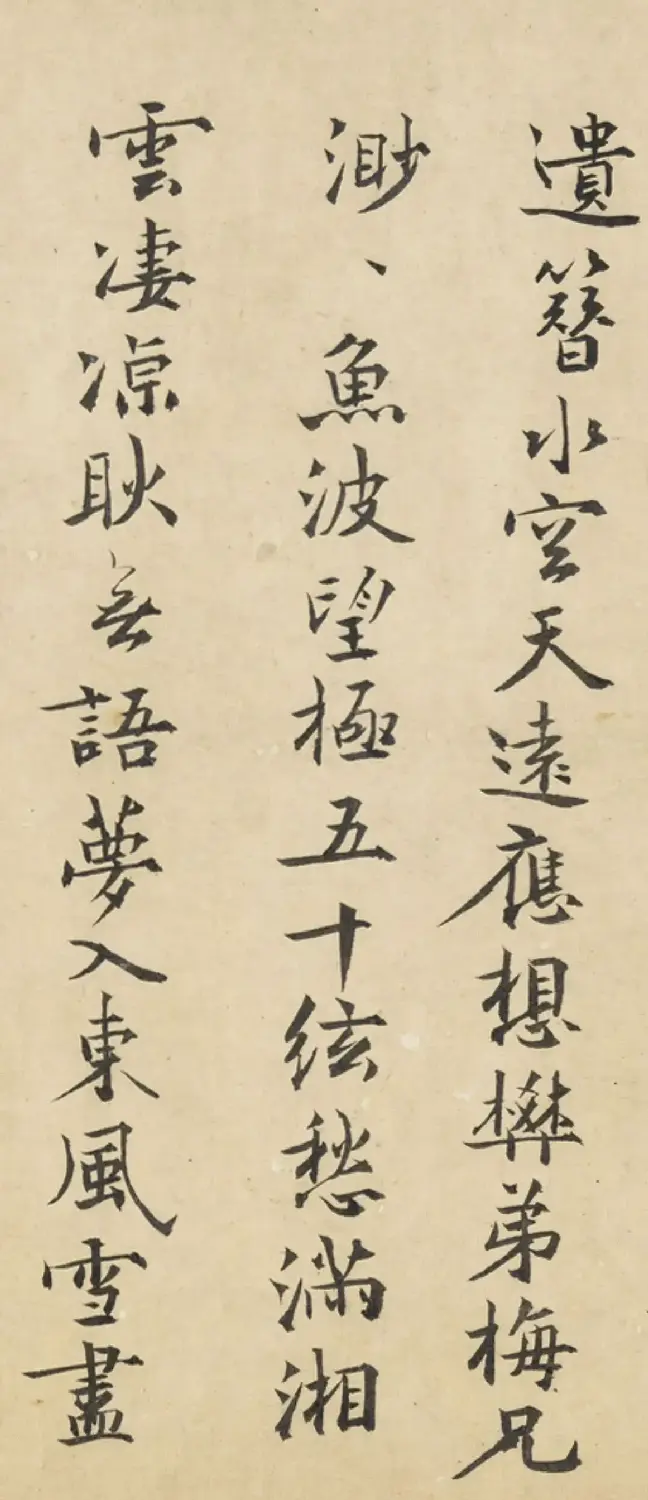 遺簪水空天遠應想樊弟梅兄
渺、魚波望極五十絃愁滿湘
雲淒凉耿無語夢入東風雪盡